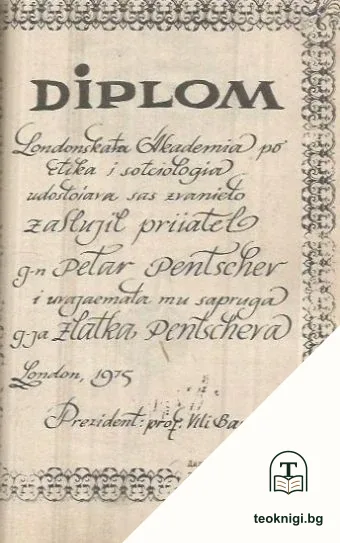 DiPLOM
Londonskata Akademia po
Etika i sotciologia
udostojava sas zvanieto
zaslujil priiatel
g-n Petar Pentscher
i uvajaemata mu sapruga
g-ja Zlatka Pentscheva
London, 1975
Prezident: prof. Vili
T
teoknigi.bg